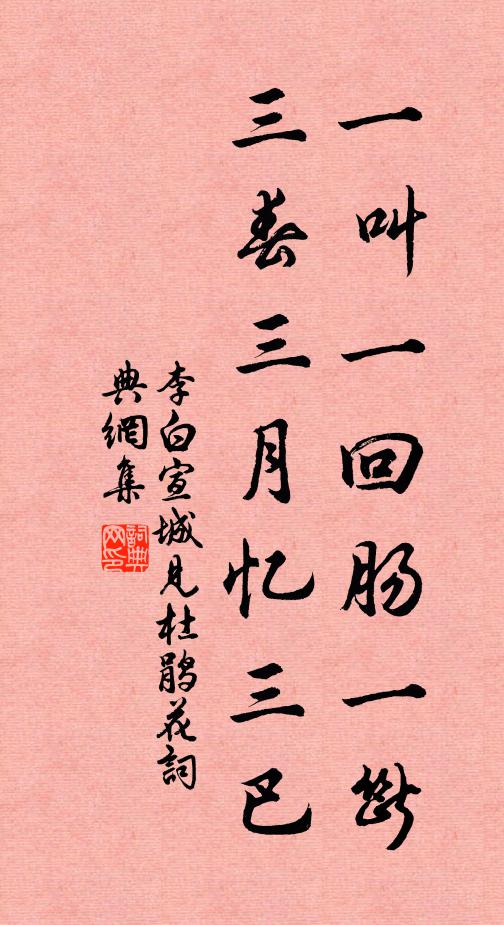 一叫一回肠一断
三春三月忆三巴
李白宣城見杜鹃花詞
典網集
詞典网印